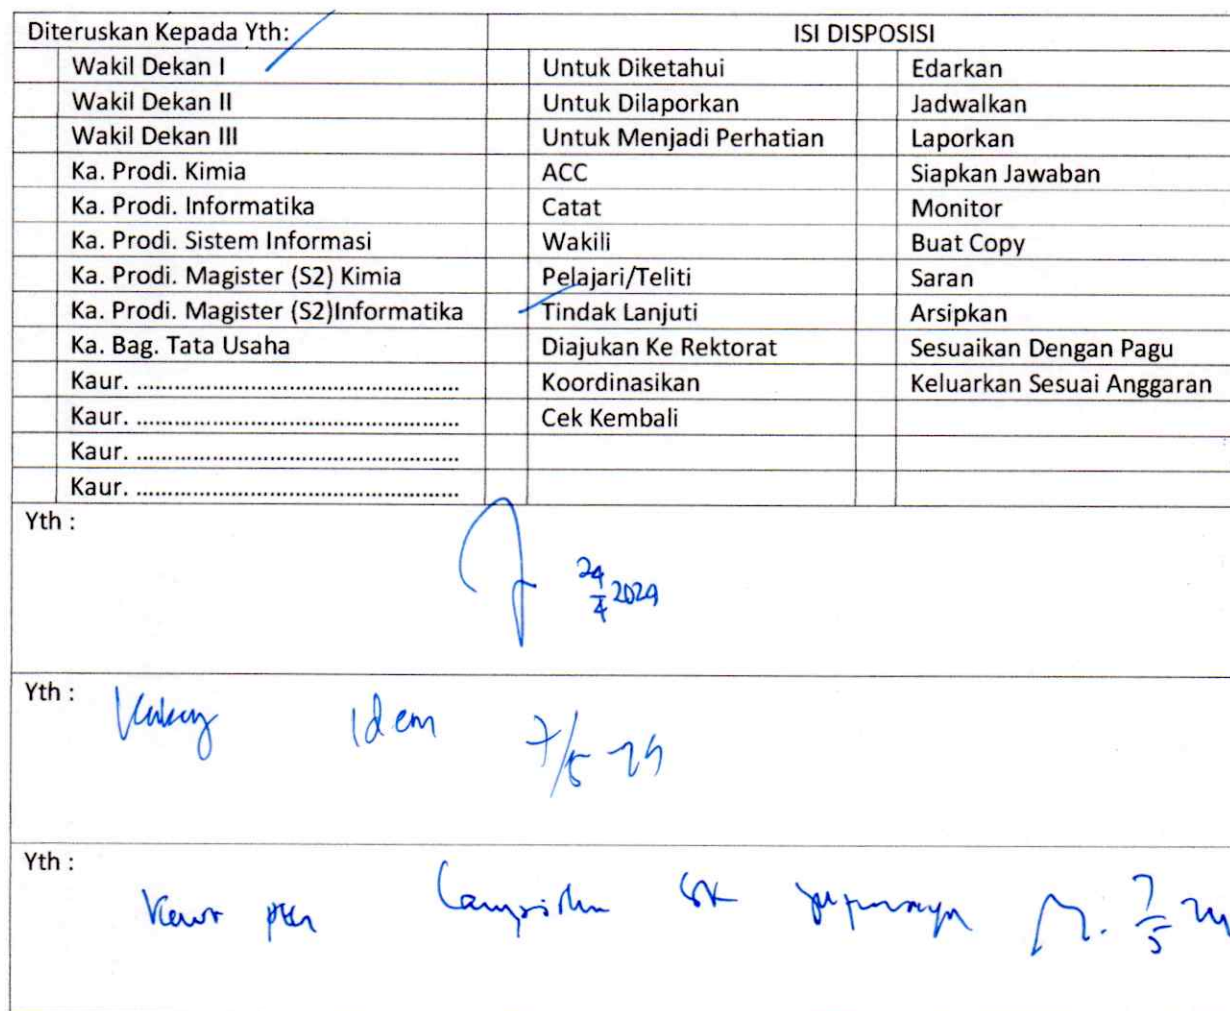 Diteruskan Kepada Yth: ISI DISPOSISI
Wakil Dekan I Untuk Diketahui Edarkan
Wakil Dekan II Untuk Dilaporkan Jadwalkan
Wakil Dekan III Untuk Menjadi Perhatian Laporkan
Ka. Prodi. Kimia ACC Siapkan Jawaban
Ka. Prodi. Informatika Catat Monitor
Ka. Prodi. Sistem Informasi Wakili Buat Copy
Ka. Prodi. Magister (S2) Kimia Pelajari/Teliti Saran
Ka. Prodi. Magister (S2)Informatika Tindak Lanjuti Arsipkan
Ka. Bag. Tata Usaha Diajukan Ke Rektorat Sesuaikan Dengan Pagu
Kaur. .................................................. Koordinasikan Keluarkan Sesuai Anggaran
Kaur. .................................................. Cek Kembali
Kaur. ..................................................
Kaur. ..................................................
Yth :
24/4 2024
Yth : Idem 7/5
Yth : Kaur 7/5